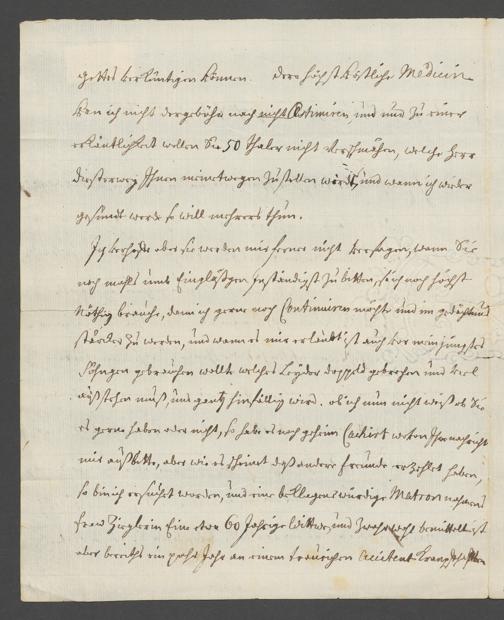 gottes verküntigen können. dero höchst köstliche Medicin
kan ich nicht der gebühr nach nicht Estimiren und nur zu einer
erkäntlichkeit wollen Sie 50 Thaler nicht verschmähen, welche Herr
Diesterweg Ihnen meinetwegen zustellen wird, und wann ich wieder
gesundt werde so will mehrers thun.
Ich verhoffe aber sie werden mir ferner nicht versagen, wann Sie
noch mahls umb Ein gläßgen inständigst zu bitten, so ich noch höchst
nöthig brauche, dann ich gerne noch Continuiren möchte und im
stärcker zu werden, und wann es mir erlaubt ist auch vor mein jüngstes
Söhngen gebrauchen wollte welches leyder doppelt gebrochen und viel
außstehen muß, und gantz hinfällig wird. ob ich nun nicht weiß ob Sie
es gerne haben oder nicht, so habe es noch geheim
mir außbitte, aber wie es scheinet daß andere freunde erzehlet haben,
so bin ich ersucht worden, und eine beklagens würdige Matron nahmens
fraw Zieglerin Eine etwa 60 Jährige Wittwe, und zwahr
aber bereits ein pahr Jahr an einem traurichen Accident